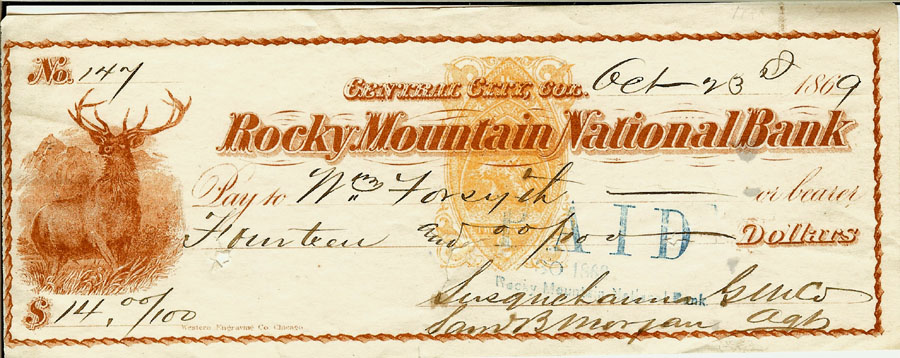 No. 147
Central City, Col. Oct 23d 1869
Rocky Mountain National Bank
Pay to Wm Forsyth or bearer
Fourteen and 00/100 Dollars
PAID
Rocky Mountain National Bank
$ 14.00/100
Susquehanna G M Co
Saml B Morgan Agt
Western Engraving Co. Chicago